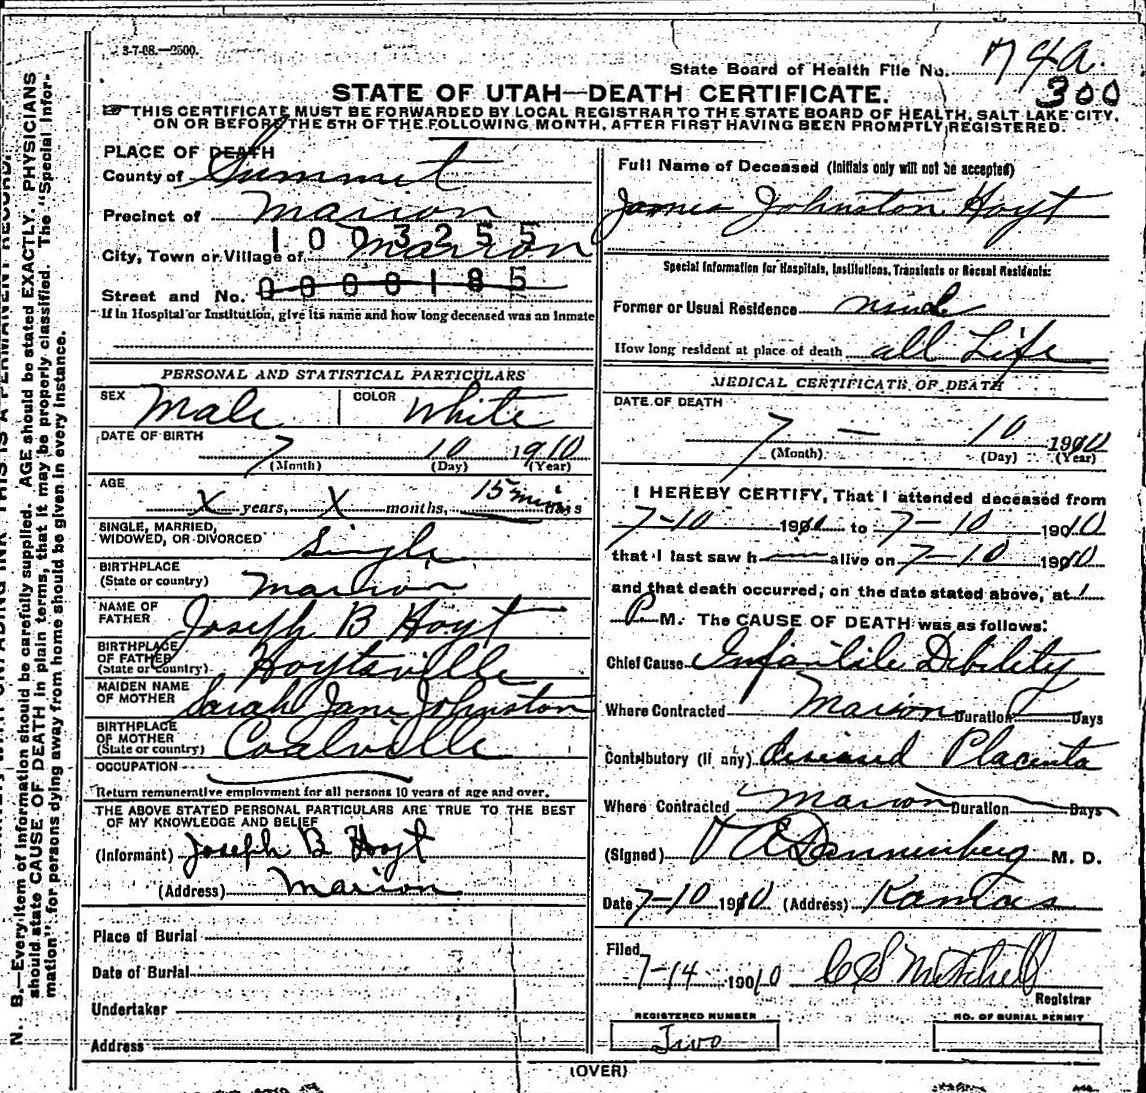 3-7-08.—2500.
State Board of Health File No. 74a.
300
STATE OF UTAH—DEATH CERTIFICATE.
☞ THIS CERTIFICATE MUST BE FORWARDED BY LOCAL REGISTRAR TO THE STATE BOARD OF HEALTH, SALT LAKE CITY,
ON OR BEFORE THE 5TH OF THE FOLLOWING MONTH, AFTER FIRST HAVING BEEN PROMPTLY REGISTERED.
PLACE OF DEATH
County of Summit
Precinct of Marion
1003255
City, Town or Village of Marion
Street and No. 0000185
If in Hospital or Institution, give its name and how long deceased was an inmate
PERSONAL AND STATISTICAL PARTICULARS
SEX Male COLOR White
DATE OF BIRTH
7 10 1910
(Month) (Day) (Year)
AGE X years, X months, 15 mins
SINGLE, MARRIED,
WIDOWED, OR DIVORCED Single
BIRTHPLACE
(State or country) Marion
NAME OF
FATHER Joseph B Hoyt
BIRTHPLACE
OF FATHER
(State or country) Hoytsville
MAIDEN NAME
OF MOTHER Sarah Jane Johnston
BIRTHPLACE
OF MOTHER
(State or country) Coalville
OCCUPATION
Return remunerative employment for all persons 10 years of age and over.
THE ABOVE STATED PERSONAL PARTICULARS ARE TRUE TO THE BEST
OF MY KNOWLEDGE AND BELIEF
(Informant) Joseph B Hoyt
(Address) Marion
Place of Burial
Date of Burial
Undertaker
Address
Full Name of Deceased (Initials only will not be accepted)
James Johnston Hoyt
Special Information for Hospitals, Institutions, Transients or Recent Residents:
Former or Usual Residence
How long resident at place of death all Life
MEDICAL CERTIFICATE OF DEATH
DATE OF DEATH
7 — 10 1910
(Month) (Day) (Year)
I HEREBY CERTIFY, That I attended deceased from
7-10 1910 to 7-10 1910
that I last saw him alive on 7-10 1910
and that death occurred, on the date stated above, at 1
P. M. The CAUSE OF DEATH was as follows:
Chief Cause Infantile Debility
Where Contracted Marion Duration Days
Contributory (if any) diseased Placenta
Where Contracted Marion Duration Days
(Signed) Dannenberg M. D.
Date 7-10 1910 (Address) Kamas
Filed
7-14 1910 Mitchell
Registrar
REGISTERED NUMBER
Two
NO. OF BURIAL PERMIT
(OVER)
N. B.—Every item of information should be carefully supplied. AGE should be stated EXACTLY. PHYSICIANS
should state CAUSE OF DEATH in plain terms, that it may be properly classified. The "Special Infor-
mation" for persons dying away from home should be given in every instance.